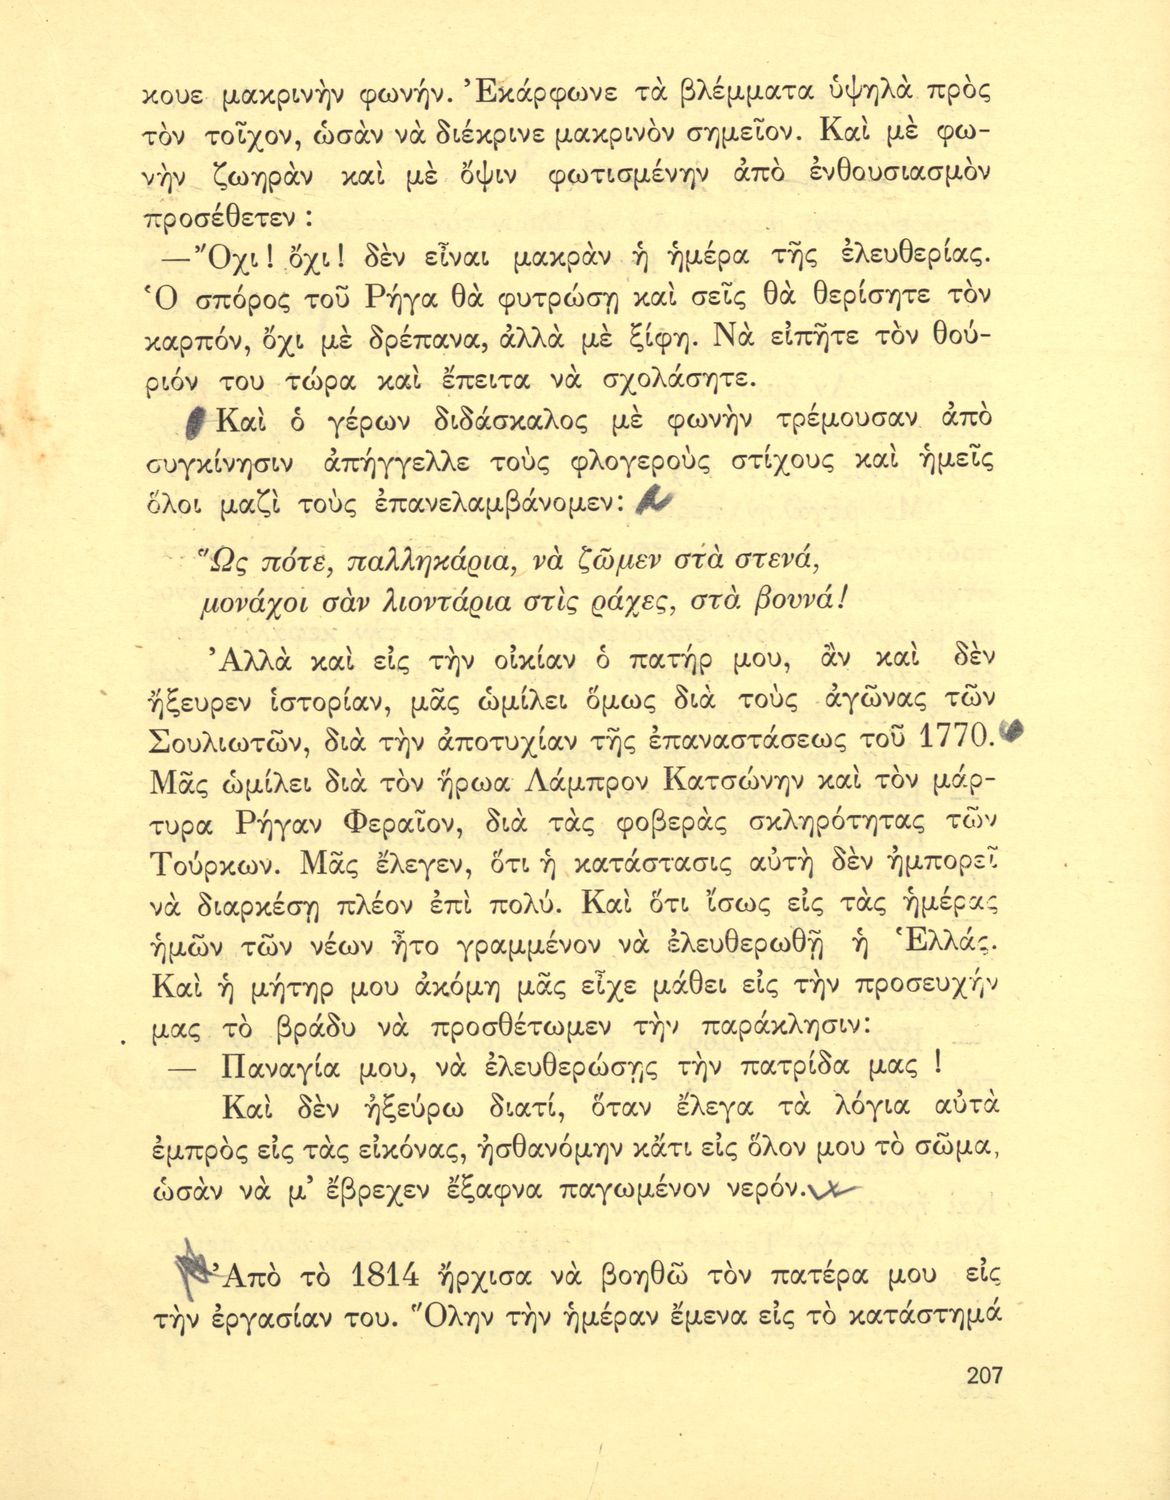 κουε μακρινὴν φωνήν. Ἐκάρφωνε τὰ βλέμματα ὑψηλὰ πρὸς
τὸν τοῖχον, ὡσὰν νὰ διέκρινε μακρινὸν σημεῖον. Καὶ μὲ φω-
νὴν ζωηρὰν καὶ μὲ ὄψιν φωτισμένην ἀπὸ ἐνθουσιασμὸν
προσέθετεν :
—Ὄχι! ὄχι! δὲν εἶναι μακρὰν ἡ ἡμέρα τῆς ἐλευθερίας.
Ὁ σπόρος τοῦ Ρήγα θὰ φυτρώσῃ καὶ σεῖς θὰ θερίσητε τὸν
καρπόν, ὄχι μὲ δρέπανα, ἀλλὰ μὲ ξίφη. Νὰ εἰπῆτε τὸν θού-
ριόν του τώρα καὶ ἔπειτα νὰ σχολάσητε.
Καὶ ὁ γέρων διδάσκαλος μὲ φωνὴν τρέμουσαν ἀπὸ
συγκίνησιν ἀπήγγελλε τοὺς φλογεροὺς στίχους καὶ ἡμεῖς
ὅλοι μαζὶ τοὺς ἐπανελαμβάνομεν:
Ὣς πότε, παλληκάρια, νὰ ζῶμεν στὰ στενά,
μονάχοι σὰν λιοντάρια στὶς ράχες, στὰ βουνά!
Ἀλλὰ καὶ εἰς τὴν οἰκίαν ὁ πατήρ μου, ἂν καὶ δὲν
ἤξευρεν ἱστορίαν, μᾶς ὡμίλει ὅμως διὰ τοὺς ἀγῶνας τῶν
Σουλιωτῶν, διὰ τὴν ἀποτυχίαν τῆς ἐπαναστάσεως τοῦ 1770.
Μᾶς ὡμίλει διὰ τὸν ἥρωα Λάμπρον Κατσώνην καὶ τὸν μάρ-
τυρα Ρήγαν Φεραῖον, διὰ τὰς φοβερὰς σκληρότητας τῶν
Τούρκων. Μᾶς ἔλεγεν, ὅτι ἡ κατάστασις αὐτὴ δὲν ἠμπορεῖ
νὰ διαρκέσῃ πλέον ἐπὶ πολύ. Καὶ ὅτι ἴσως εἰς τὰς ἡμέρας
ἡμῶν τῶν νέων ἦτο γραμμένον νὰ ἐλευθερωθῇ ἡ Ἑλλάς.
Καὶ ἡ μήτηρ μου ἀκόμη μᾶς εἶχε μάθει εἰς τὴν προσευχήν
μας τὸ βράδυ νὰ προσθέτωμεν τὴν παράκλησιν:
— Παναγία μου, νὰ ἐλευθερώσῃς τὴν πατρίδα μας !
Καὶ δὲν ἠξεύρω διατί, ὅταν ἔλεγα τὰ λόγια αὐτὰ
ἐμπρὸς εἰς τὰς εἰκόνας, ἠσθανόμην κἄτι εἰς ὅλον μου τὸ σῶμα,
ὡσὰν νὰ μ’ ἔβρεχεν ἔξαφνα παγωμένον νερόν.
Ἀπὸ τὸ 1814 ἤρχισα νὰ βοηθῶ τὸν πατέρα μου εἰς
τὴν ἐργασίαν του. Ὅλην τὴν ἡμέραν ἔμενα εἰς τὸ κατάστημά
207